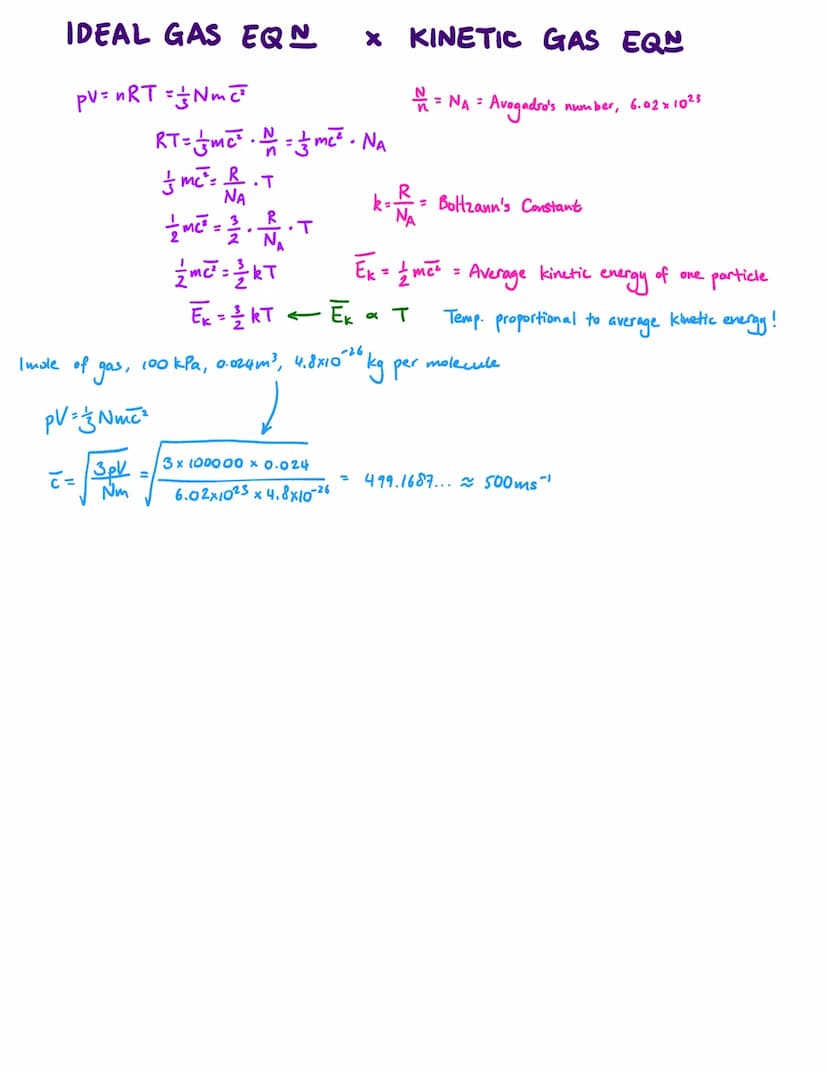 IDEAL GAS EQN x KINETIC GAS EQN
pV = nRT = ⅓Nmc̅²̅
N/n = NA = Avogadro's number, 6.02 x 10²³
RT = ⅓mc̅²̅ · N/n = ⅓mc̅²̅ · NA
⅓mc̅²̅ = R/NA · T
k = R/NA = Boltzann's Constant
½mc̅²̅ = 3/2 · R/NA · T
½mc̅²̅ = 3/2 kT
E̅k̅ = ½mc̅²̅ = Average kinetic energy of one particle
E̅k̅ = 3/2 kT ← E̅k̅ ∝ T Temp. proportional to average kinetic energy!
1 mole of gas, 100 kPa, 0.024m³, 4.8x10⁻²⁶ kg per molecule
pV = ⅓Nmc̅²
c̅ = √(3pV/Nm) = √(3 x 100000 x 0.024 / 6.02x10²³ x 4.8x10⁻²⁶) = 499.1687... ≈ 500ms⁻¹